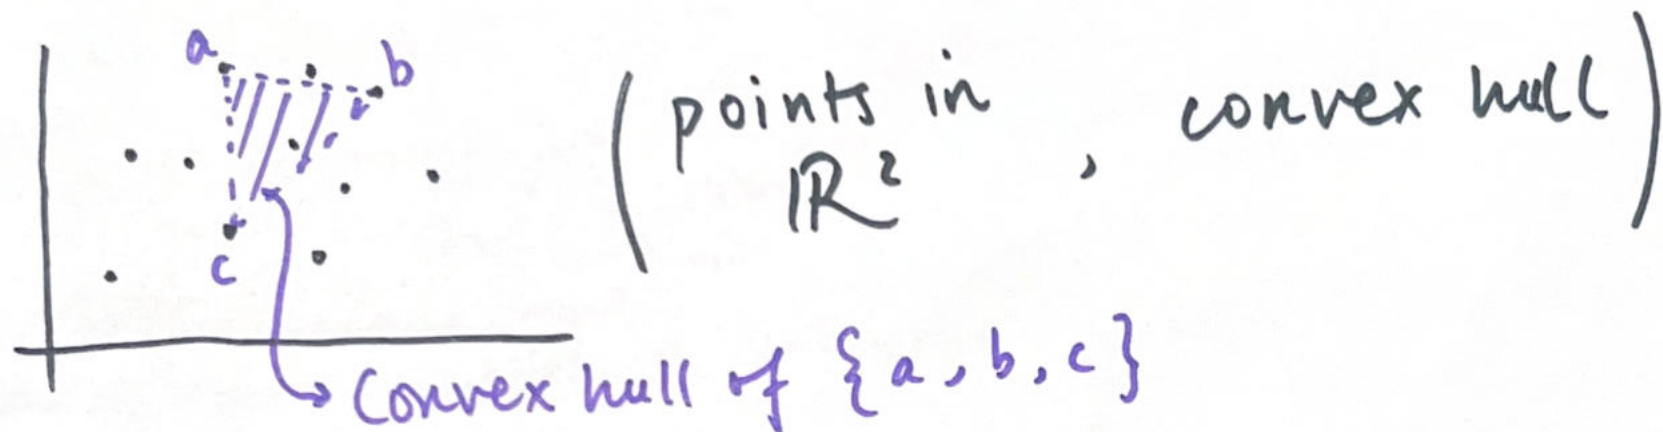 a b
c
( points in
ℝ² , convex hull )
Convex hull of {a, b, c}